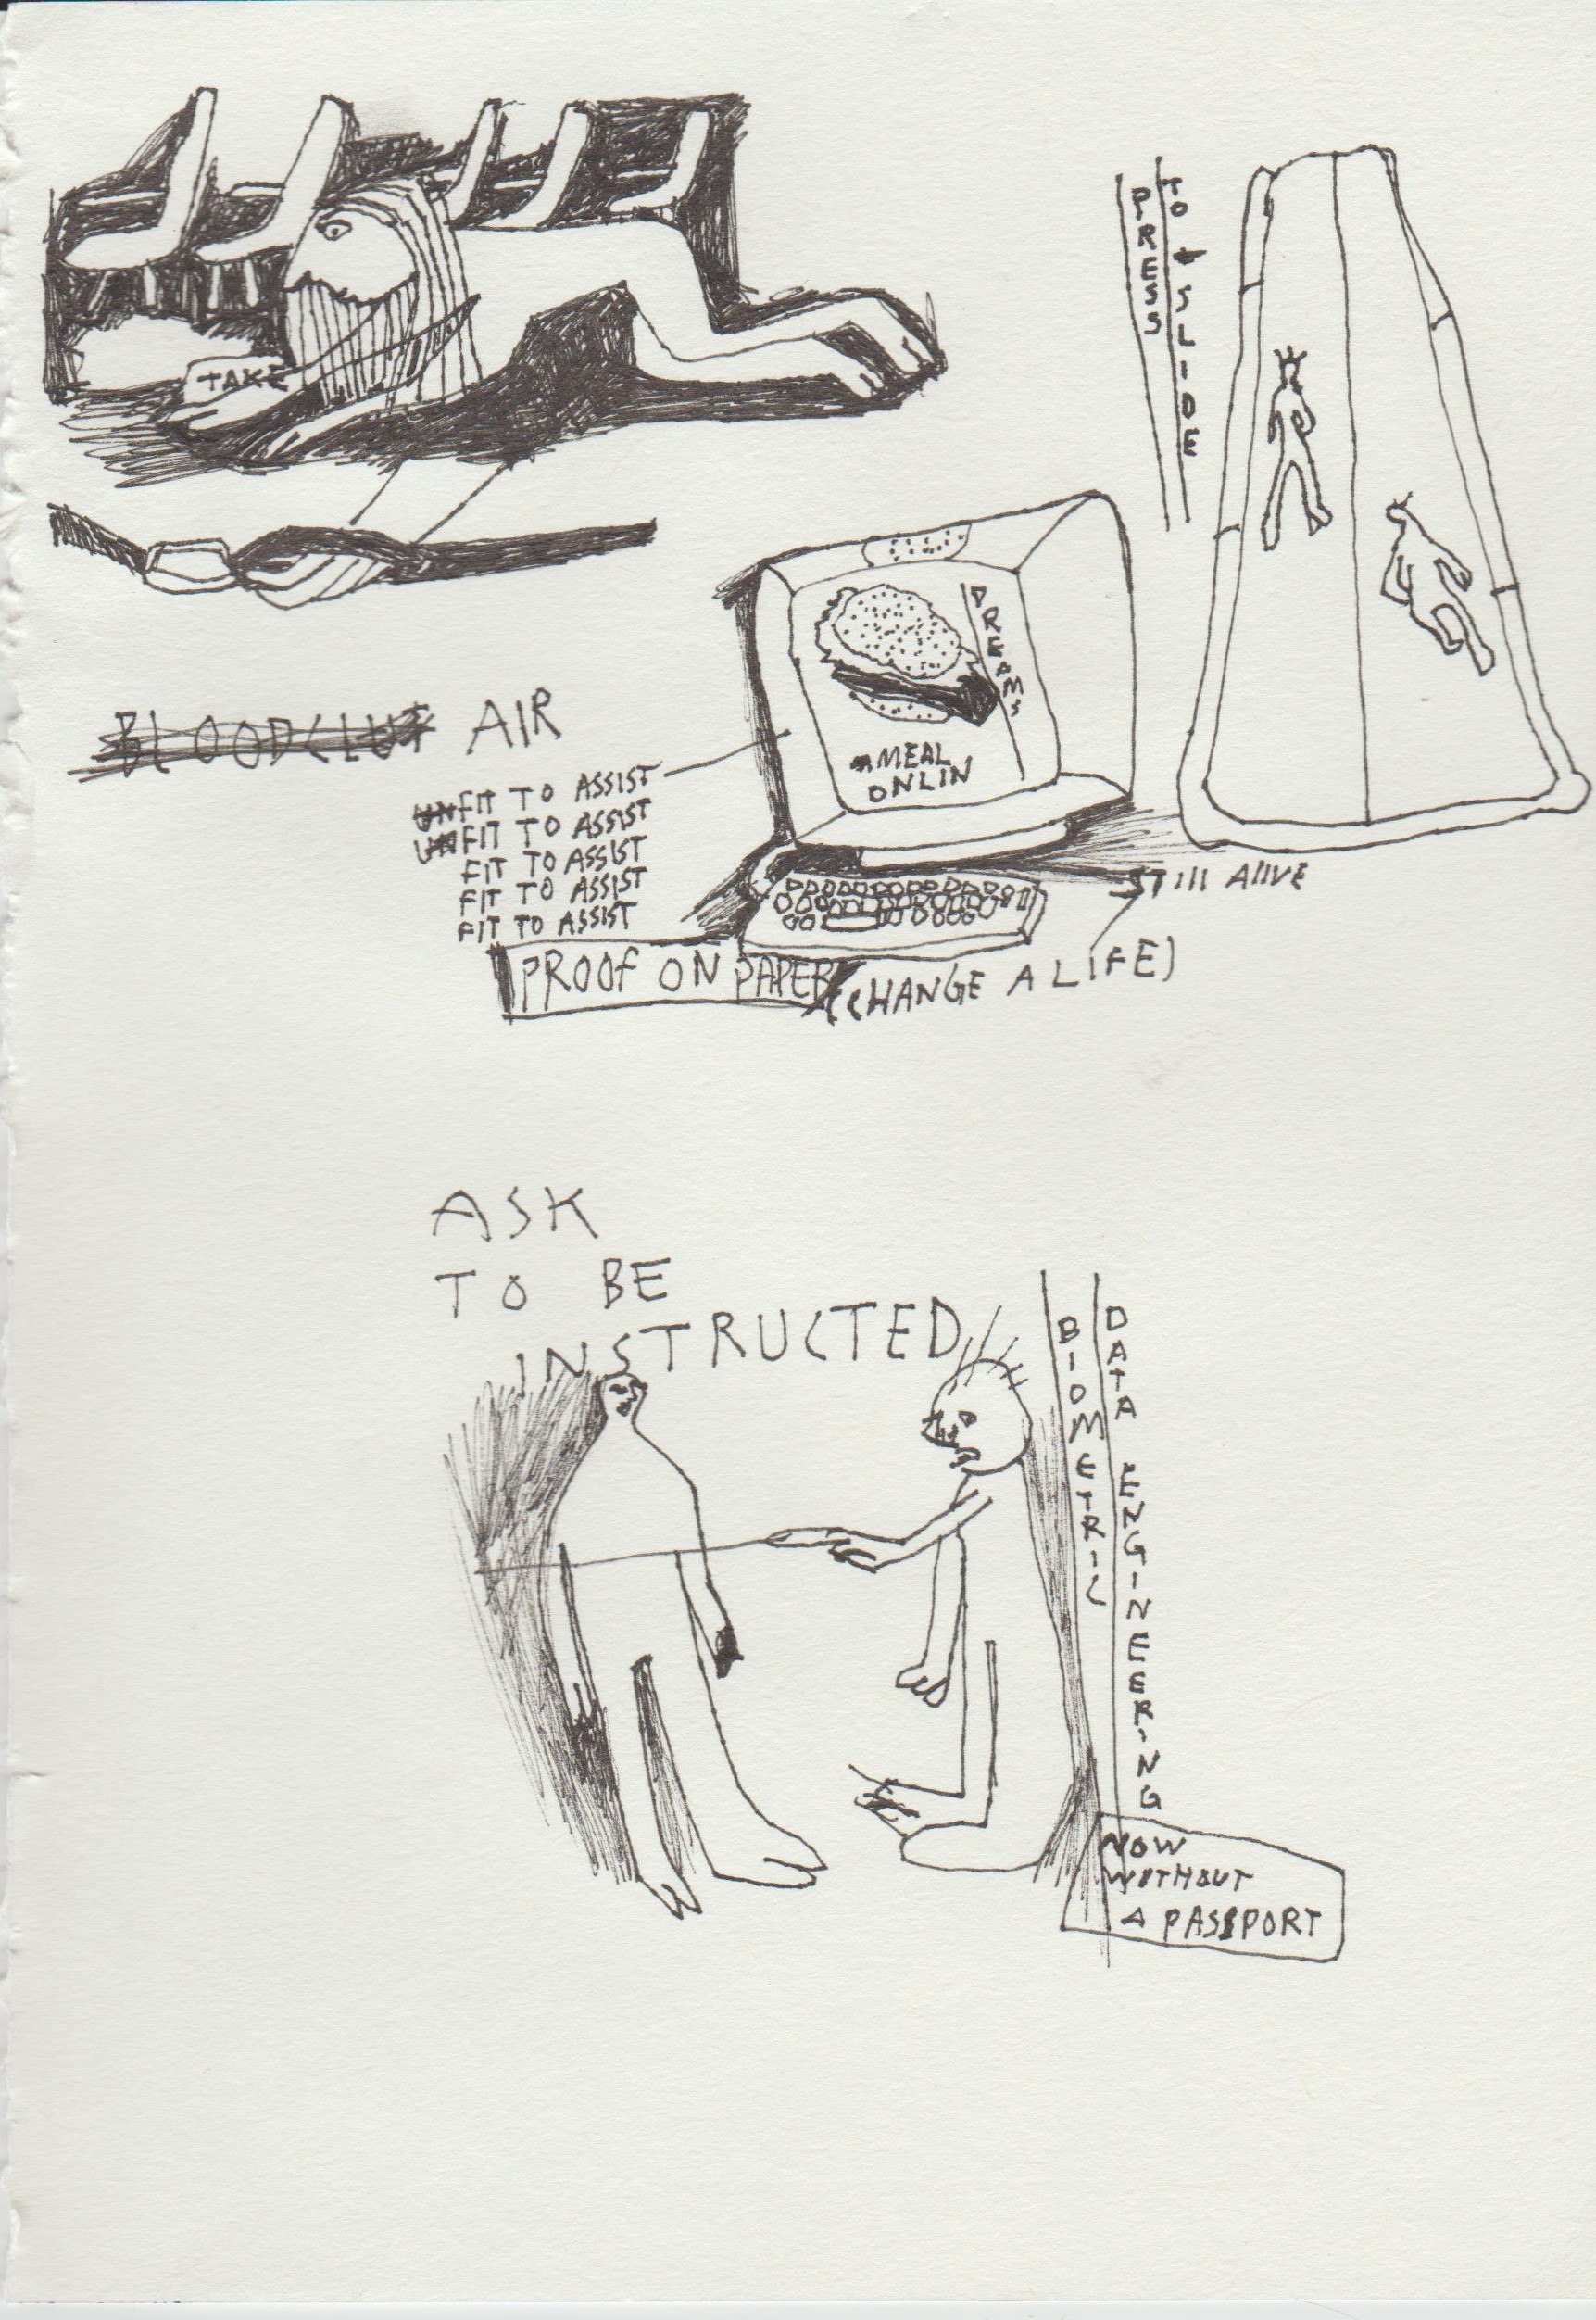 TAKE
PRESS
TO + SLIDE
BLOODCLUT AIR
UNFIT TO ASSIST
UNFIT TO ASSIST
FIT TO ASSIST
FIT TO ASSIST
FIT TO ASSIST
DREAMS
MEAL
ONLIN
STILL ALIVE
PROOF ON PAPER
(CHANGE A LIFE)
ASK
TO BE
INSTRUCTED
BIOMETRIC
DATA ENGINEERING
NOW
WITHOUT
A PASSPORT